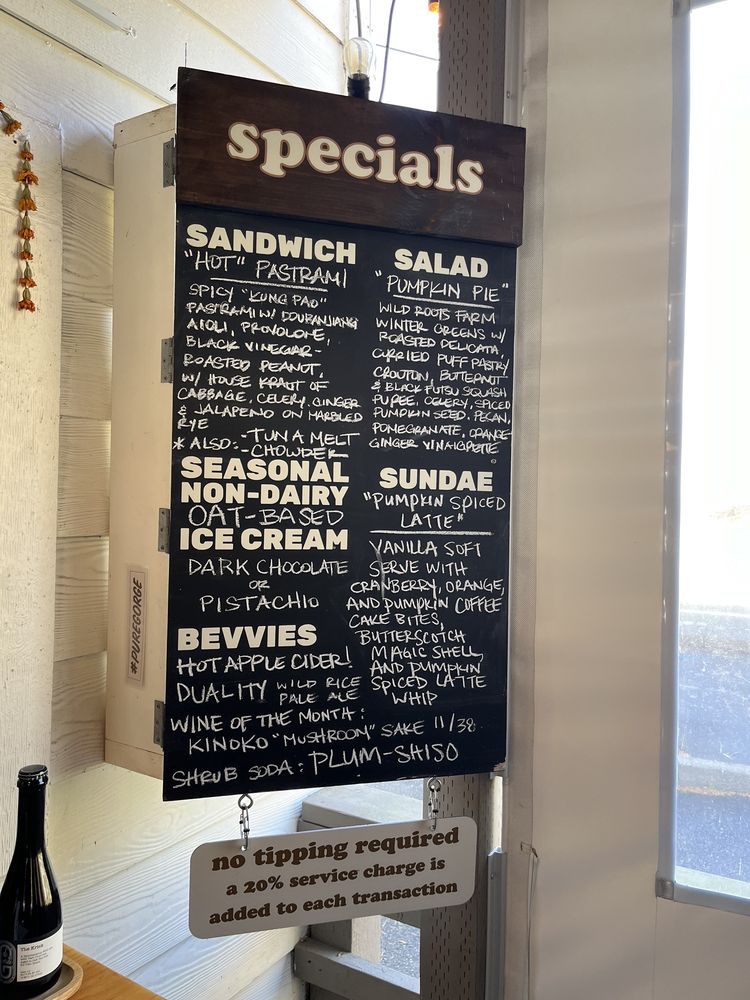 specials
SANDWICH
"HOT" PASTRAMI
SPICY "KUNG PAO"
PASTRAMI W/ DOUBANJIANG
AIOLI, PROVOLONE,
BLACK VINEGAR-
ROASTED PEANUT,
W/ HOUSE KRAUT OF
CABBAGE, CELERY, GINGER
& JALAPENO ON MARBLED
RYE
* ALSO: -TUNA MELT
-CHOWDER
SALAD
"PUMPKIN PIE"
WILD ROOTS FARM
WINTER GREENS W/
ROASTED DELICATA,
CURRIED PUFF PASTRY
CROUTON, BUTTERNUT
& BLACK FUTSU SQUASH
PUREE, CELERY, SPICED
PUMPKIN SEED, PECAN,
POMEGRANATE, ORANGE-
GINGER VINAIGRETTE
SEASONAL
NON-DAIRY
OAT-BASED
ICE CREAM
DARK CHOCOLATE
OR
PISTACHIO
SUNDAE
"PUMPKIN SPICED
LATTE"
VANILLA SOFT
SERVE WITH
CRANBERRY, ORANGE,
AND PUMPKIN COFFEE
CAKE BITES,
BUTTERSCOTCH
MAGIC SHELL,
AND PUMPKIN
SPICED LATTE
WHIP
BEVVIES
HOT APPLE CIDER!
DUALITY WILD RICE
PALE ALE
WINE OF THE MONTH:
KINOKO "MUSHROOM" SAKE 11/38
SHRUB SODA: PLUM-SHISO
#PUREGORGE
no tipping required
a 20% service charge is
added to each transaction